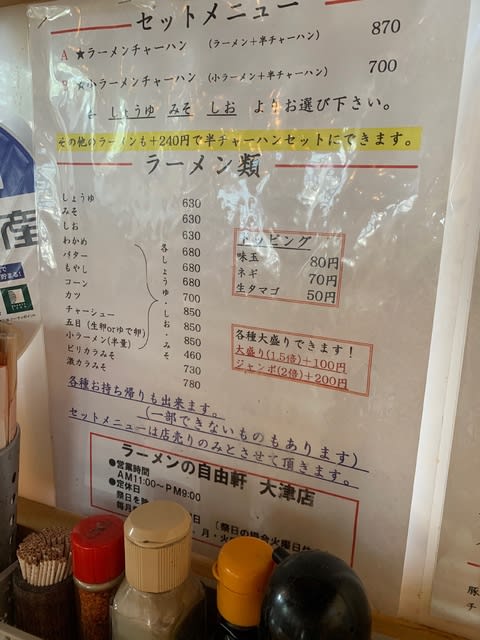 セットメニュー
A ★ラーメンチャーハン (ラーメン+半チャーハン) 870
☆小ラーメンチャーハン (小ラーメン+半チャーハン) 700
しょうゆ みそ しお よりお選び下さい。
その他のラーメンも+240円で半チャーハンセットにできます。
ラーメン類
しょうゆ 630
みそ 630
しお 630
わかめ 680
バター 680
もやし 680
コーン 680
カツ 700
チャーシュー 850
五目(生卵orゆで卵) 850
小ラーメン(半量) 460
ピリカラみそ 730
激カラみそ 780
各しょうゆ・しお・みそ
トッピング
味玉 80円
ネギ 70円
生タマゴ 50円
各種大盛りできます!
大盛り(1.5倍)+100円
ジャンボ(2倍)+200円
各種お持ち帰りも出来ます。
(一部できないものもあります)
セットメニューは店売りのみとさせて頂きます。
ラーメンの自由軒 大津店
●営業時間
AM11:00~PM9:00
●定休日
祭日を
毎月